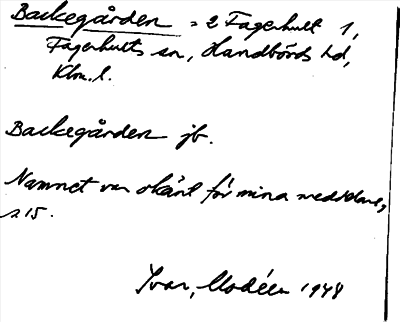 Backegården = 2 Fagerhult 1,
Fagerhults sn, Handbörds hd,
Klm. l.
Backegården jb.
Namnet var okänt för mina meddelare,
s 15.
Ivar Modéer 1948